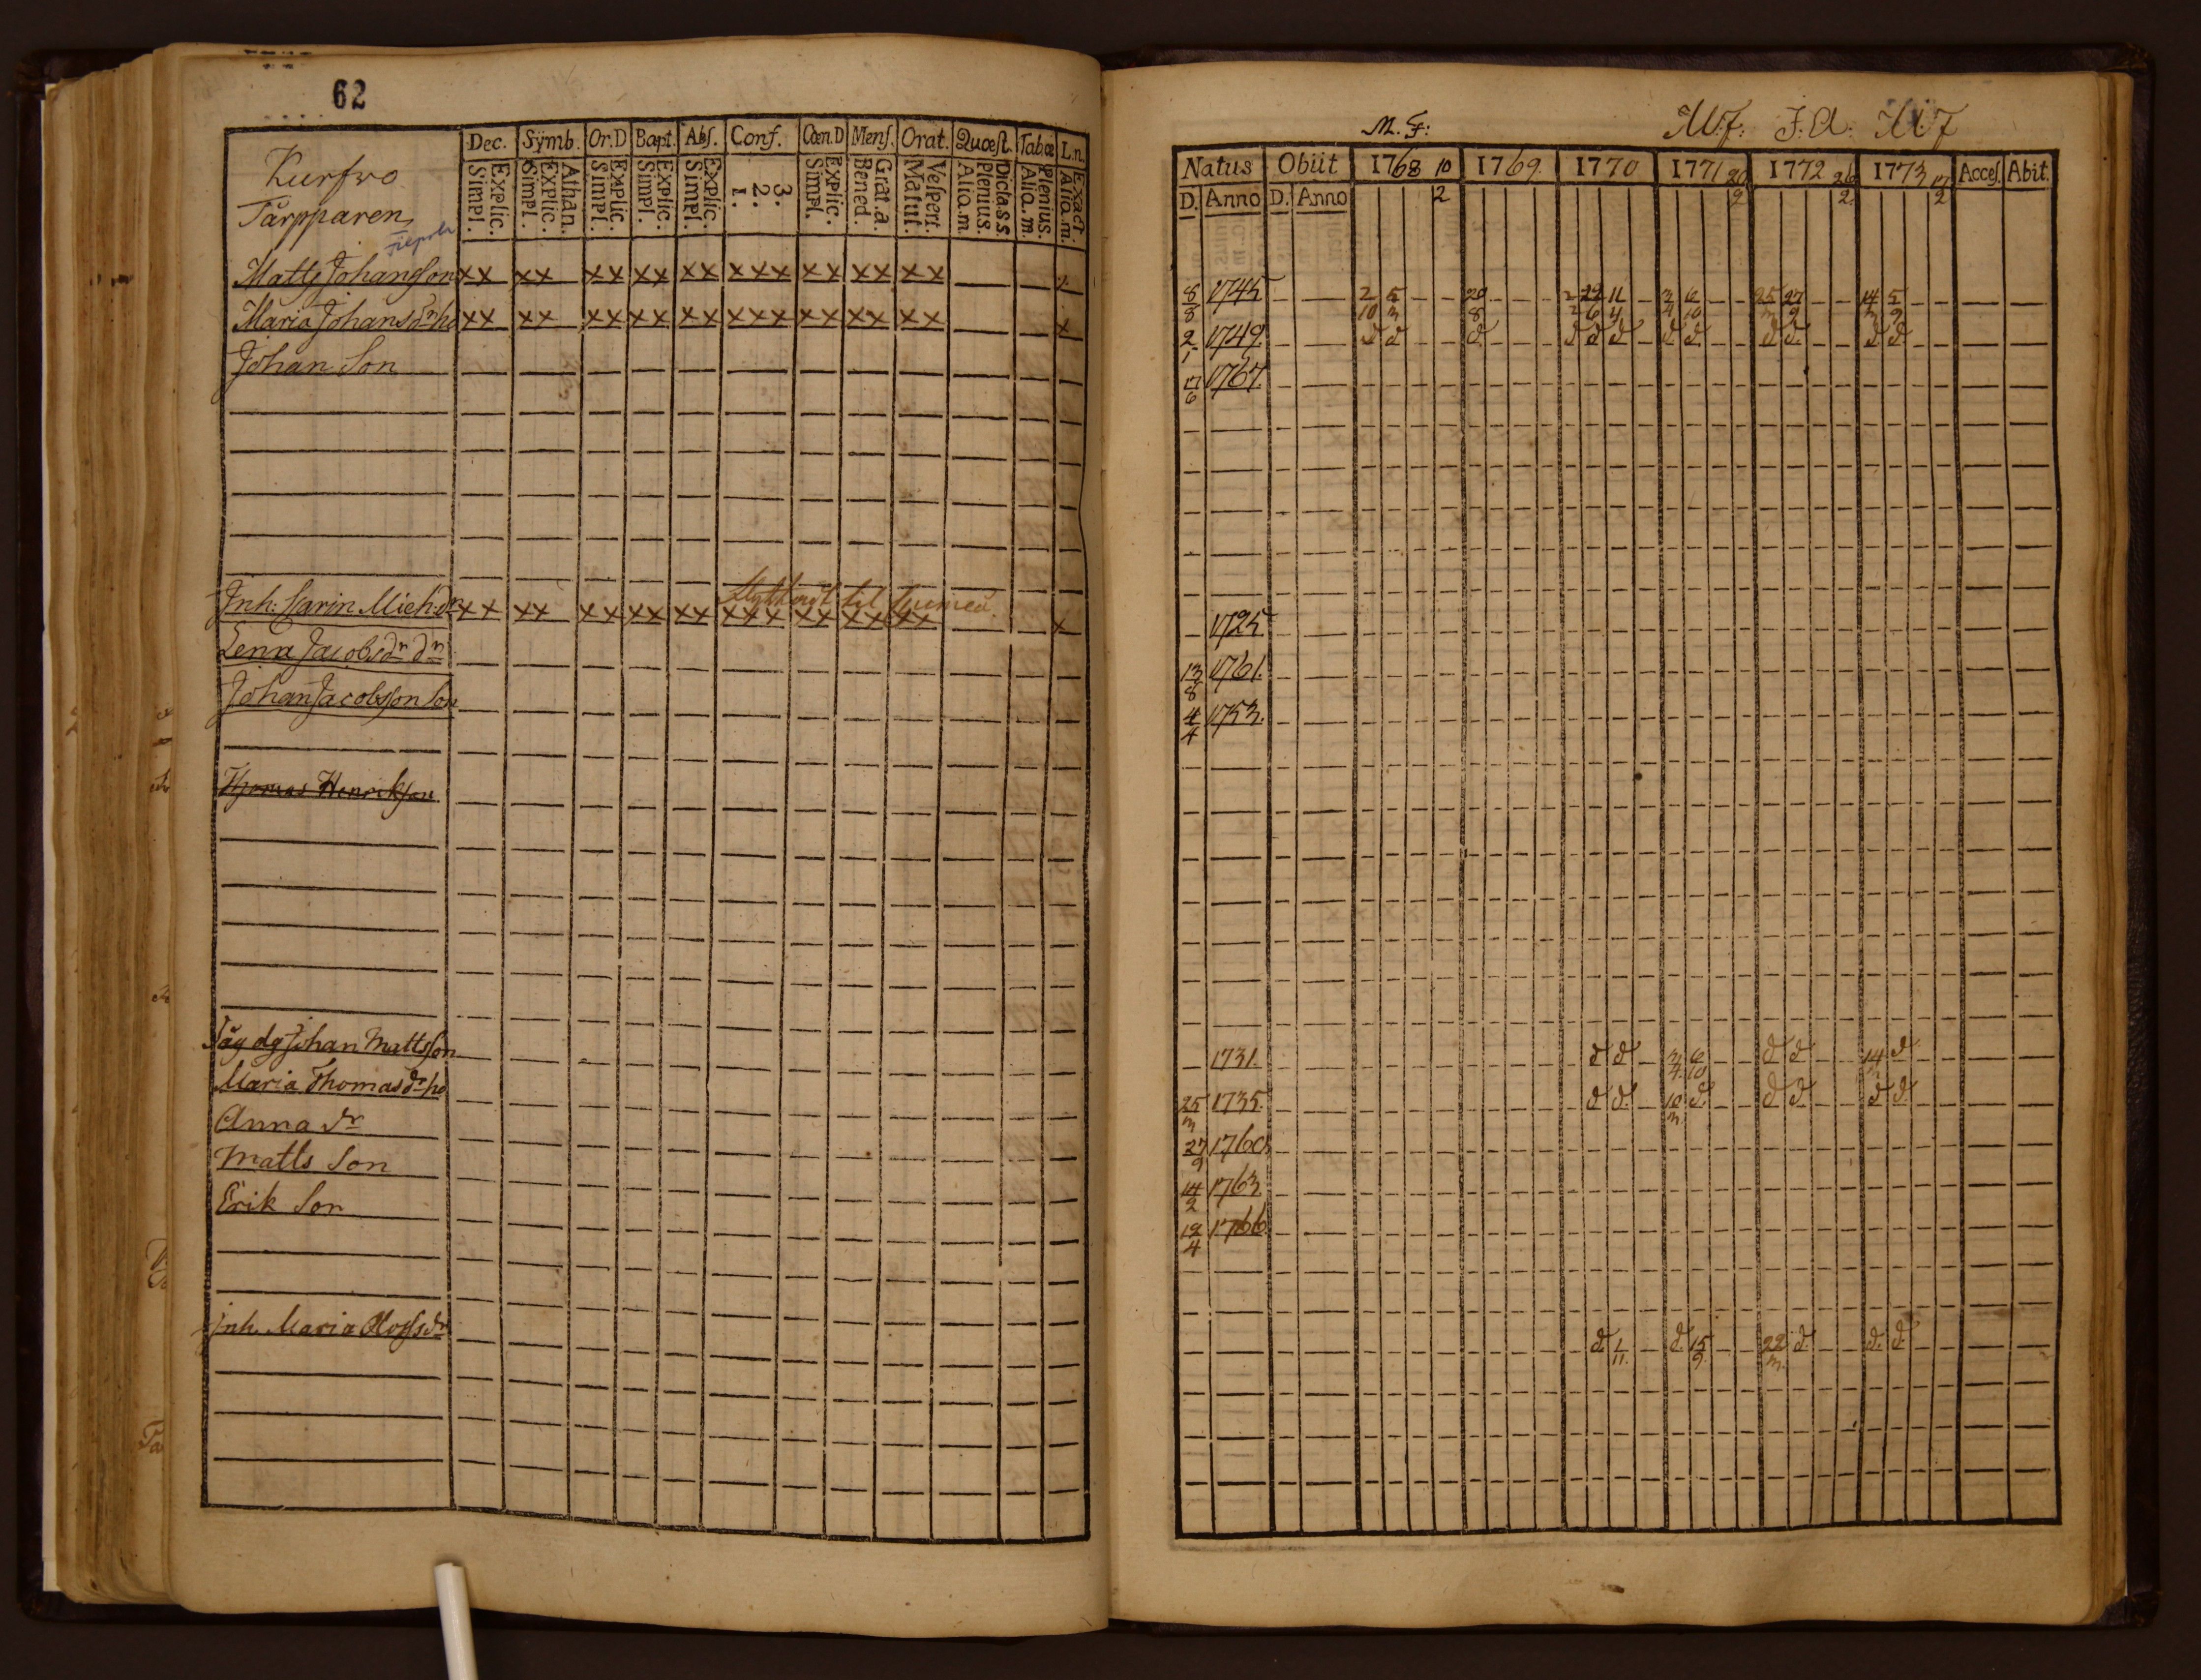 62
Dec. Sÿmb. Or.D Bapt. Abs. Conf. Cœn.D Mens. Orat. Quæst. Tabœ L.n.
Explic. Simpl. Athan. Explic. Simpl. Explic. Simpl. Explic. Simpl. Explic. Simpl. 3. 2. 1. Explic. Simpl. Grat.a. Bened. Vespert. Matut. Dictass. Plenius. Aliq.m. Plenius. Aliq.m. Exact. Aliq.m.
Kurfwo
Tårpparen
Matts Johansson xx xx xx xx xx xxx xx xx xx x
Maria Johansdr ho xx xx xx xx xx xxx xx xx xx x
Johan Son
Inh: Carin Mich:dr xx xx xx xx xx xxx xx xx xx x
Lena Jacobsdr dr
Johan Jacobsson Son
Thomas Henriksson
Johan Mattsson
Maria Thomasdr ho
Anna dr
Matts Son
Erik Son
Inh. Maria Olofsdr
M. F: M.F: F.A. M.F
Natus Obiit 1768 10/2 1769. 1770 1771 20/2 1772 26/2 1773 17/2 Acces. Abit.
D. Anno D. Anno
8/8 1745 2/10 5/3 20/8 11/4 3/4 6/10 25/3 27/9 14/3 5/9
2/1 1749. d d d. d d d d d. d d. d d
17/6 1767.
1725
13/8 1761.
4/4 1753.
1731. d d 3/4 6/10 d d 14/3 d
25/3 1735. d d. 10/3 d. d d d d
27/9 1760.
14/2 1763.
12/4 1766.
d. 1/11. d. 15/9. 22/3. d. d. d.